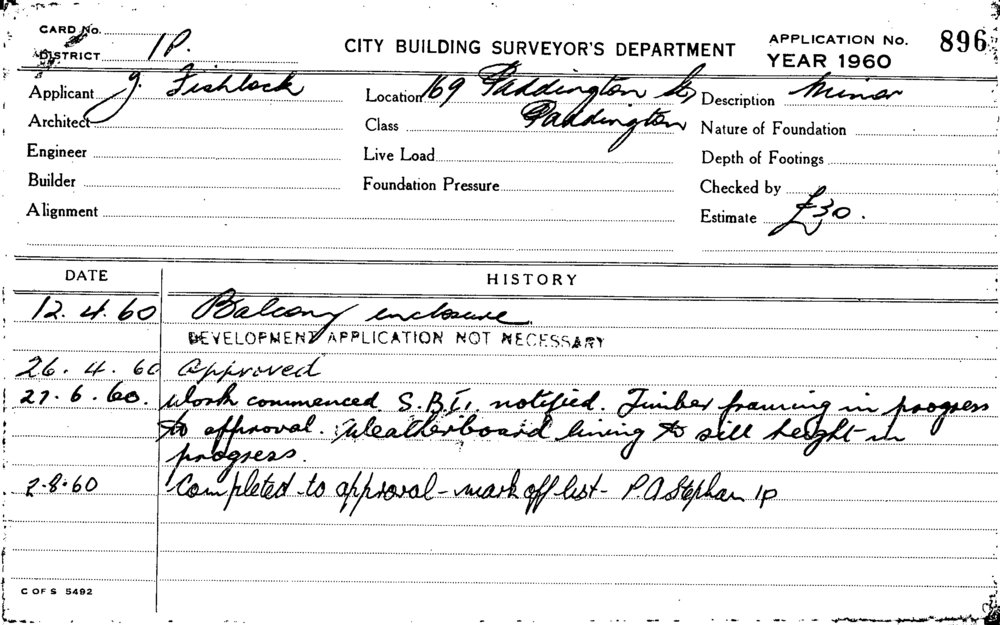 CARD No.
DISTRICT 1P.
CITY BUILDING SURVEYOR'S DEPARTMENT
APPLICATION No. 896
YEAR 1960
Applicant J. Fishlock
Location 169 Paddington St,
Description Minor
Architect
Class Paddington
Nature of Foundation
Engineer
Live Load
Depth of Footings
Builder
Foundation Pressure
Checked by
Alignment
Estimate £30.
DATE HISTORY
12.4.60 Balcony enclosure.
DEVELOPMENT APPLICATION NOT NECESSARY
26.4.60 Approved
27.6.60. Work commenced. S.B.I. notified. Timber framing in progress
to approval. Weatherboard lining to sill height in
progress.
2-8-60 Completed to approval - mark off list - P.A Stephan 1P
C OF S 5492